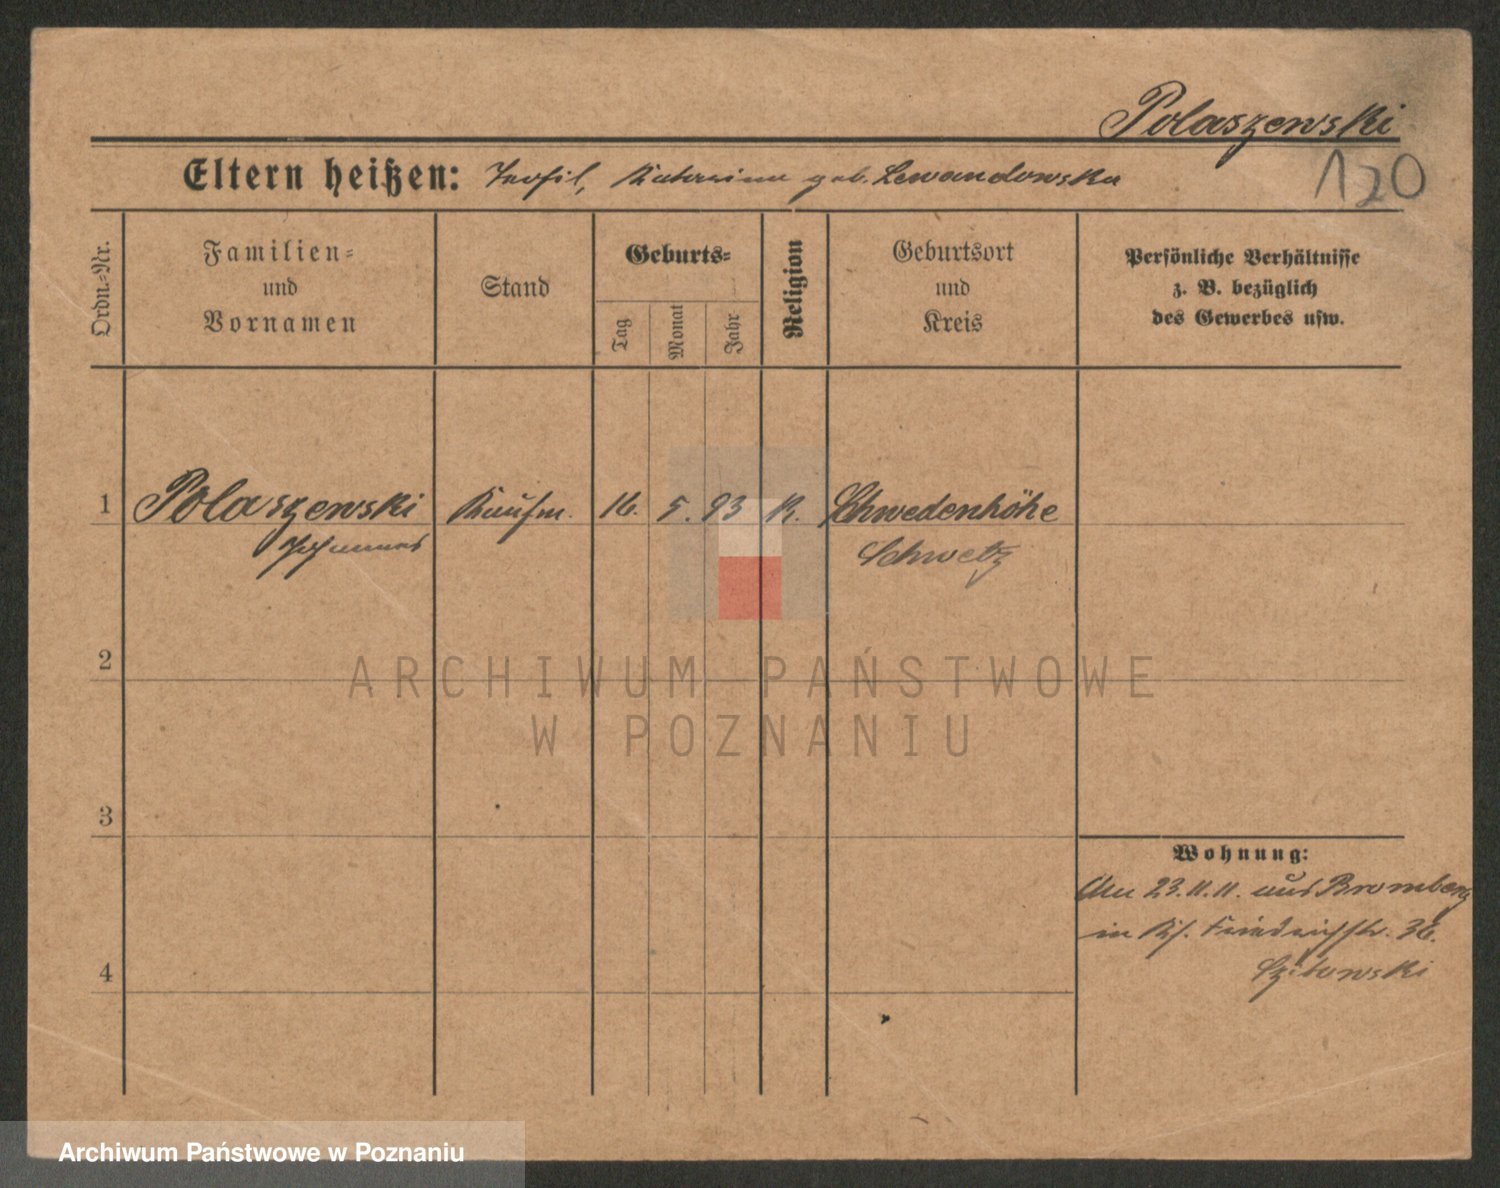 Polaszewski
120
Eltern heißen: Teofil, Katarina geb. Lewandowska
Ordn.-Nr.
Familien-
und
Vornamen
Stand
Geburts-
Tag
Monat
Jahr
Religion
Geburtsort
und
Kreis
Persönliche Verhältnisse
z. B. bezüglich
des Gewerbes usw.
1 Polaszewski Kaufm. 16. 5. 93 K. Schwedenhöhe
Johannes Schwetz
2
3
4
Wohnung:
Am 23.11.11. aus Bromberg
in Friedrichstr. 36.
Szitowski
ARCHIWUM PAŃSTWOWE
W POZNANIU
Archiwum Państwowe w Poznaniu